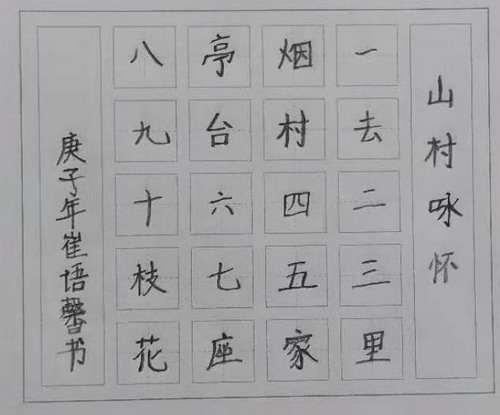 山村咏怀
一去二三里
烟村四五家
亭台六七座
八九十枝花
庚子年崔语馨书